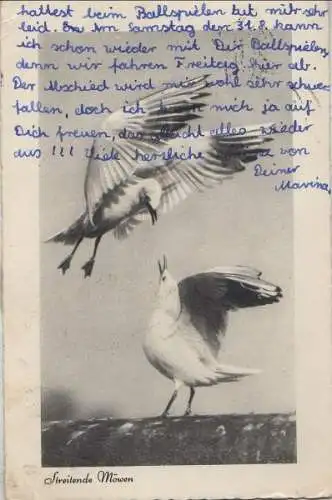 hattest beim Ballspielen tut mir sehr
leid. Am Samstag den 31.8 kann
ich schon wieder mit Dir Ballspielen,
denn wir fahren Freitag hier ab.
Der Abschied wird mir wohl sehr schwer
fallen, doch ich kann mich ja auf
Dich freuen, das gleicht alles wieder
aus !!! Viele herzliche von
Deiner
Marina
Streitende Möwen